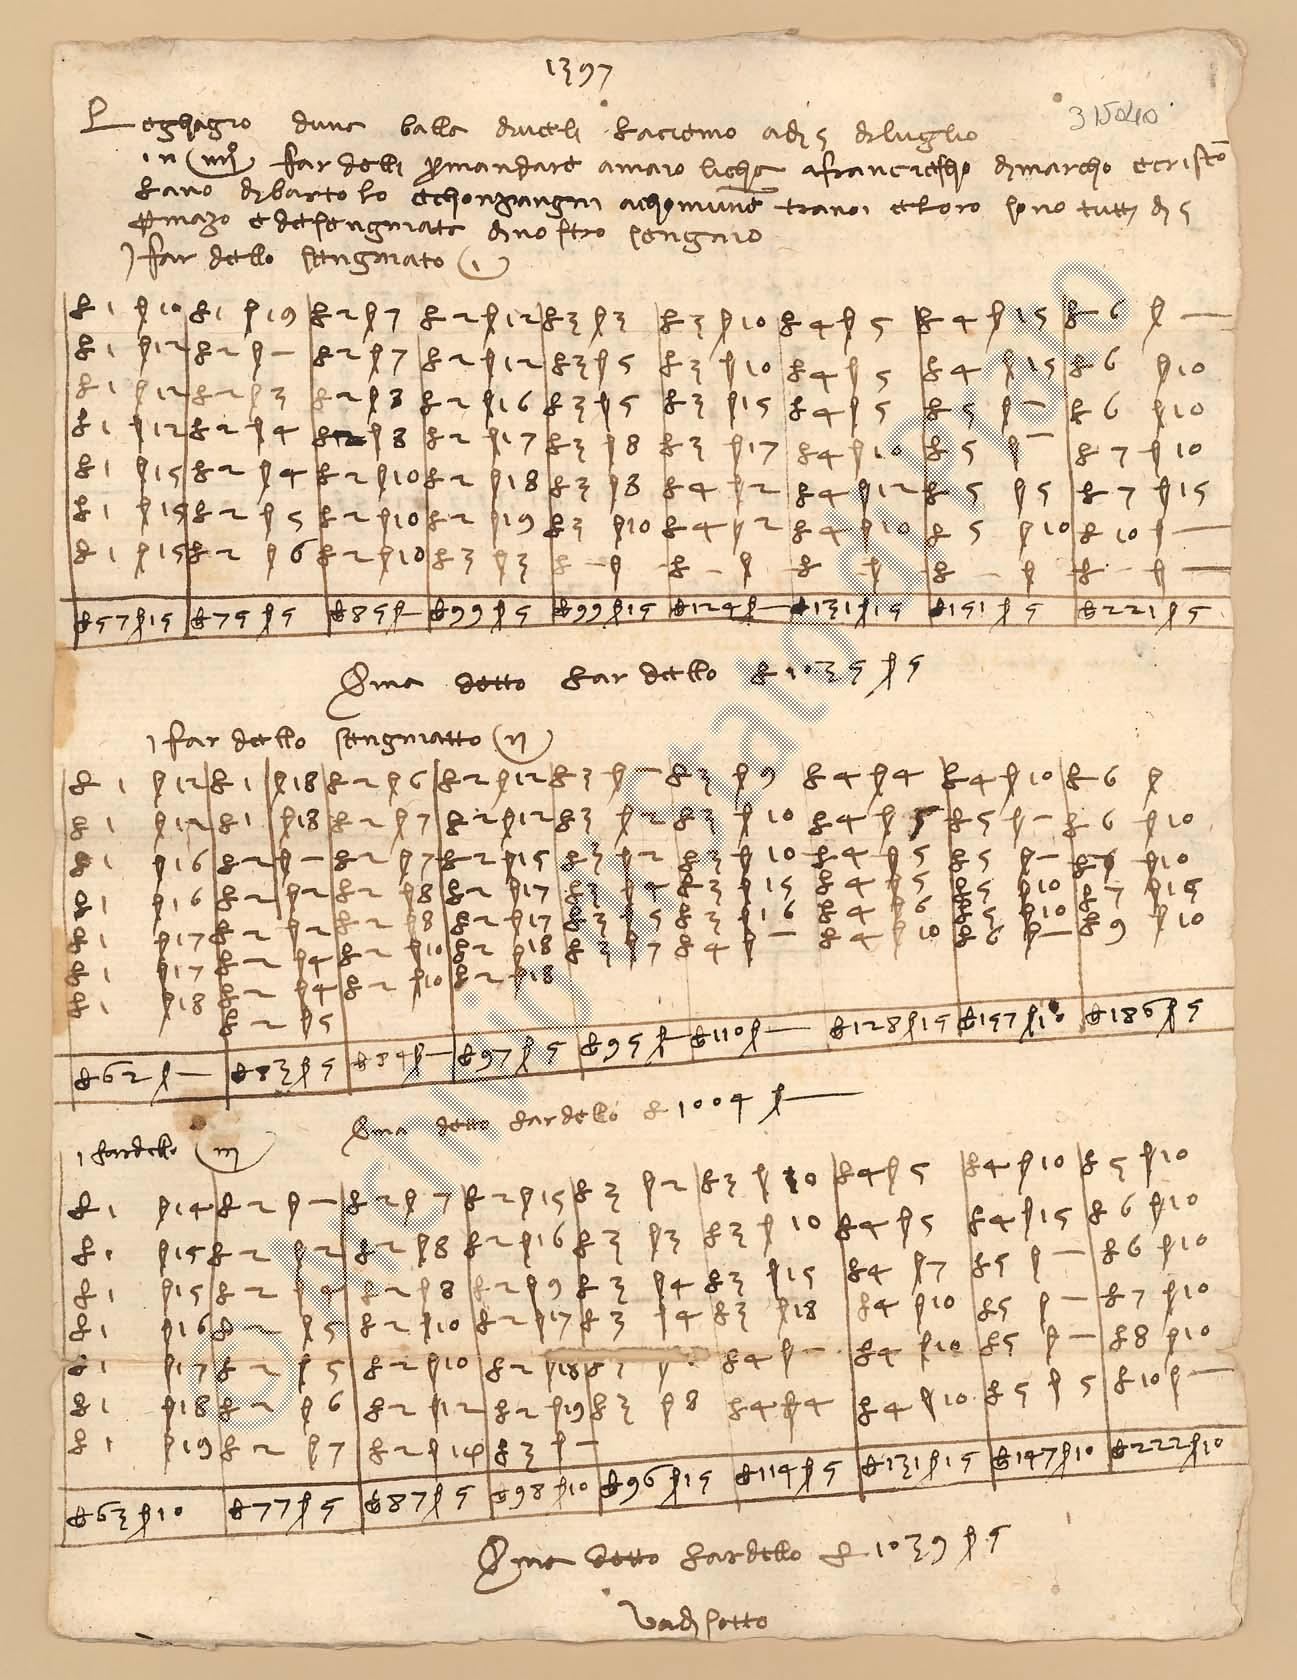 1397
315040
Leghagio duna balla di veli facemo a dì 5 di luglio
in (iiij°) fardelli per mandare a maiolicha a francescho di marcho e cristo
fano di bartolo e chonpangni a chomune tra noi e loro sono tutti di 5
per mazo e de sengniata di nostro sengnio
1 fardello sengniato (i)
£ 1 s 10 £ 1 s 19 £ 2 s 7 £ 2 s 12 £ 3 s 3 £ 3 s 10 £ 4 s 5 £ 4 s 15 £ 6 s —
£ 1 s 12 £ 2 s — £ 2 s 7 £ 2 s 12 £ 3 s 5 £ 3 s 10 £ 4 s 5 £ 4 s 15 £ 6 s 10
£ 1 s 12 £ 2 s 3 £ 2 s 8 £ 2 s 16 £ 3 s 5 £ 3 s 15 £ 4 s 5 £ 5 s — £ 6 s 10
£ 1 s 12 £ 2 s 4 £ 2 s 8 £ 2 s 17 £ 3 s 8 £ 3 s 17 £ 4 s 10 £ 5 s — £ 7 s 10
£ 1 s 15 £ 2 s 4 £ 2 s 10 £ 2 s 18 £ 3 s 8 £ 4 s 2 £ 4 s 12 £ 5 s 5 £ 7 s 15
£ 1 s 15 £ 2 s 5 £ 2 s 10 £ 2 s 19 £ 3 s 10 £ 4 s 2 £ 4 s 10 £ 5 s 10 £ 10 s —
£ 1 s 15 £ 2 s 6 £ 2 s 10 £ 3 s 3 £ — s £ — s £ — s £ — s £ — s —
£ 57 s 15 £ 75 s 5 £ 85 s — £ 99 s 5 £ 99 s 15 £ 124 s — £ 131 s 15 £ 151 s 5 £ 221 s 5
Soma detto fardello £ 1035 s 5
1 fardello sengniatto (ij)
£ 1 s 12 £ 1 s 18 £ 2 s 6 £ 2 s 12 £ 3 s — £ 3 s 9 £ 4 s 4 £ 4 s 10 £ 6 s
£ 1 s 12 £ 1 s 18 £ 2 s 7 £ 2 s 12 £ 3 s 2 £ 3 s 10 £ 4 s 5 £ 5 s — £ 6 s 10
£ 1 s 16 £ 2 s — £ 2 s 7 £ 2 s 15 £ 3 s 2 £ 3 s 10 £ 4 s 5 £ 5 s — £ 6 s 10
£ 1 s 16 £ 2 s 2 £ 2 s 8 £ 2 s 17 £ 3 s 4 £ 3 s 15 £ 4 s 5 £ 5 s 10 £ 7 s 15
£ 1 s 17 £ 2 s 2 £ 2 s 8 £ 2 s 17 £ 3 s 5 £ 3 s 16 £ 4 s 6 £ 5 s 10 £ 9 s 10
£ 1 s 17 £ 2 s 4 £ 2 s 10 £ 2 s 18 £ 3 s 7 £ 4 s — £ 4 s 10 £ 6 s —
£ 1 s 18 £ 2 s 4 £ 2 s 10 £ 2 s 18
£ 2 s 5
£ 62 s — £ 83 s 5 £ 84 s — £ 97 s 5 £ 95 s — £ 110 s — £ 128 s 15 £ 157 s 10 £ 186 s 5
Soma detto fardello £ 1004 s —
1 fardello (iij)
£ 1 s 14 £ 2 s — £ 2 s 7 £ 2 s 15 £ 3 s 2 £ 3 s 10 £ 4 s 5 £ 4 s 10 £ 5 s 10
£ 1 s 15 £ 2 s 2 £ 2 s 8 £ 2 s 16 £ 3 s 3 £ 3 s 10 £ 4 s 5 £ 4 s 15 £ 6 s 10
£ 1 s 15 £ 2 s 4 £ 2 s 8 £ 2 s 9 £ 3 s 4 £ 3 s 15 £ 4 s 7 £ 5 s — £ 6 s 10
£ 1 s 16 £ 2 s 5 £ 2 s 10 £ 2 s 17 £ 3 s 4 £ 3 s 18 £ 4 s 10 £ 5 s — £ 7 s 10
£ 1 s 17 £ 2 s 5 £ 2 s 10 £ 2 s 18 £ s £ 4 s — £ 4 s 10 £ 5 s — £ 8 s 10
£ 1 s 18 £ 2 s 6 £ 2 s 12 £ 2 s 19 £ 3 s 8 £ 4 s 4 £ 4 s 10 £ 5 s 5 £ 10 s —
£ 1 s 19 £ 2 s 7 £ 2 s 14 £ 3 s —
£ 63 s 10 £ 77 s 5 £ 87 s 5 £ 98 s 10 £ 96 s 15 £ 114 s 5 £ 131 s 15 £ 147 s 10 £ 222 s 10
Soma detto fardello £ 1039 s 5
Va di sotto